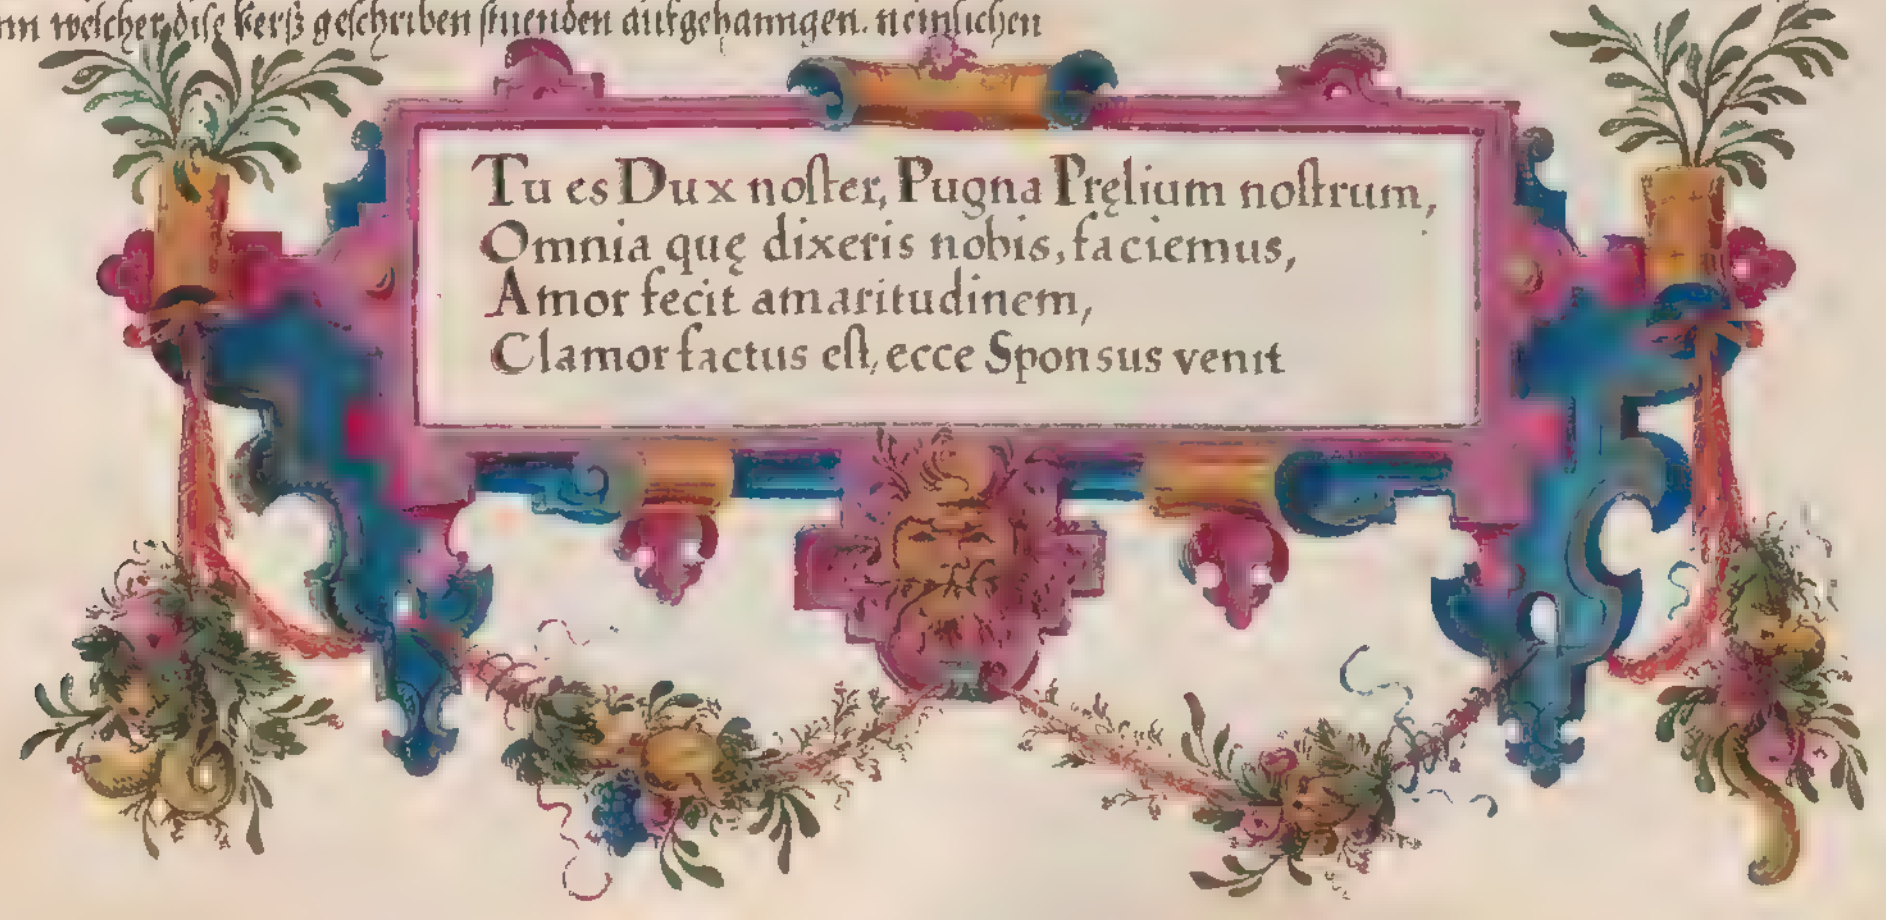 welcher dise Verß geschriben stuenden aufgehanngen. nemlichen
Tu es Dux noster, Pugna Pręlium nostrum,
Omnia quę dixeris nobis, faciemus,
Amor fecit amaritudinem,
Clamor factus est, ecce Sponsus venit